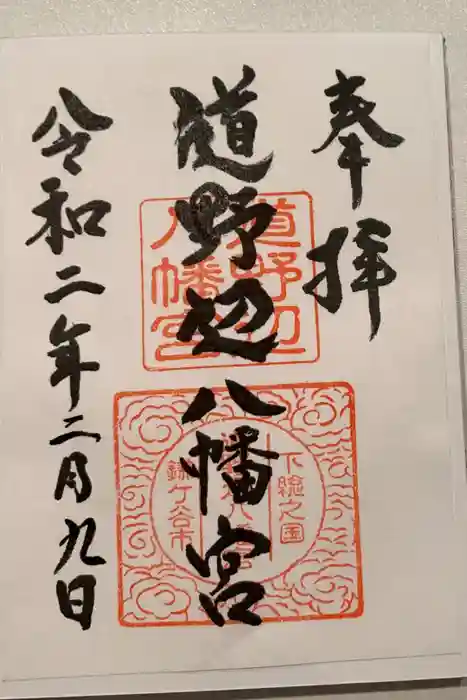 奉拝
道野辺八幡宮
令和二年二月九日
道野辺
八幡宮
下総之国
鎌ケ谷市